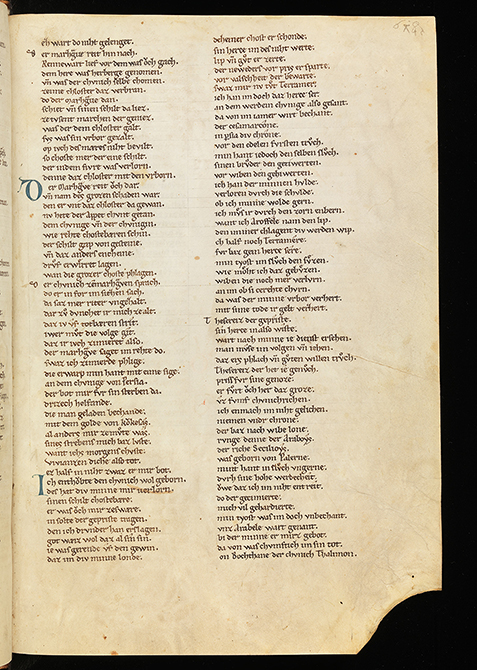 ern wart do niht gelenget.
er marhgue reit hin nach.
Rennewart lief vor dem was och gach.
dem here was herberge genomen.
vn was der chvnich selbe chomen.
zeime chloster daz verbran.
do der marhgue dan.
schiet vn sinen schilt da liez.
zetvsent marchen der geniez.
was der dem chloster galt.
swaz vur verbran gezalt.
so choste mer der eine schilt.
der indem fivre was verlorn.
denne daz chloster mit den vrborn.
Der marhgue reit och dar.
vn nam des grozen schaden war.
den er vnt daz chloster da gewan.
nv hete der appet chvnt getan.
dem chvnige vn der chvnigin.
wie rehte chostebaren schin.
der schilt gap von gesteine.
vn daz anders encheine.
drvf erwirret lagen.
wan die grozer choste phlagen.
er chvnich
do er in fur im stehen sach.
da sax mer riter vngehalt.
dar zv
dax iv vf toeldaren strit.
iwer mvt die volge git.
dax ir iveh zimieret also.
der marhgue saget im rehte do.
swax ich zimierde phlige.
die erwarp min hant mit eime sige.
an dem chvnige von persia.
der bot mir fvr sin sterben da.
drizech helfande.
die man geladen bechande.
mit dem golde von kovkesas.
al anders mir zemvte was.
sines strebens mich bax lvste.
want iehs morgens chvste.
vivianzen diche also tot.
er half in niht swax er mir bot.
Ich enthobte den chvnich wol geborn.
des hat div minne mir verlorn.
sinen schilt chostebare.
er was och mir zesware.
in solte der gepriste tragen.
den ich drvnder han erslagen.
got waiz wol dax al sin sin.
ie was gerende vf den gewin.
dax im div minne londe.
deheiner chost er schonde.
sin herze im des niht werte.
lip vn gvt er zerte.
der newederz vor pris er sparte.
vor valscheit der bewarte.
swax mir nv tvt Terramer.
ich han im doch dax herze ser.
an dem werdem chvnige also gesant.
da von im iamer wirt bechant.
der
in persia div chrone.
vor den edelen fvrsten trvch.
min hant iedoch den selben slvch.
sinen brvder den getriwerten.
vor wiben den gehiwerten.
ich han der minnen hvlde.
verloren dvrch die schvlde.
ob ich minne wolde gern.
ich mvs ir dvrch den zorn enbern.
want ich Arofele nam den lip.
den immer chlagent div werden wip.
ich half noch Terramere.
fvr bax gein herze sere.
min tyost im slvch den svzen.
wie moht ich dax gebvzen.
wiben die noch mer verlvrn.
an im ob si rehte chvrn.
da was der minne vrbor verhert.
mir sine tode ir gelt verhert.
Thesereiz der gepriste.
sin herze in also wiste.
wart nach minne ie dienst ersehen.
man mvse im volgen vn iehen.
dax erz phlach vn gvten willen trvch.
Thesereiz der her ie genvch.
priss fvr sine genoze.
er fvrt och her dax groze.
vz fvnf chvnichrichen.
ich enmach im niht gelichen.
niemen vndr chrone.
der bax nach wibe lone.
rvnge denne der Araboys.
der riche Seciloys.
was geborn von Palerne.
mint hant in slvch vngerne.
dvrh sine hohe werdecheit.
owe dax ich im niht entreit.
do der gezimierte.
mich vil gehardierte.
min tyost was im doch vnbechant.
vnz Arabele wart genant.
bi der minne er mirz gebot.
da von was chvmftich im sin tot.
on Bochthane der chvnich Thalimon.